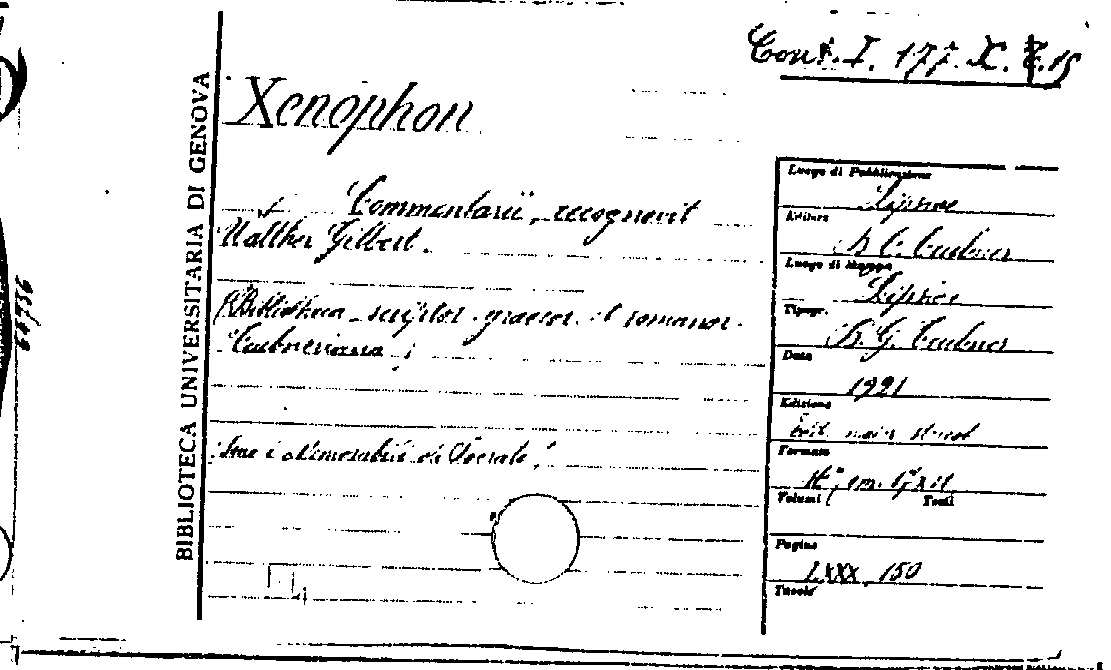 BIBLIOTECA UNIVERSITARIA DI GENOVA
Conf. I. 177. X.
Xenophon
Commentarii, recognovit
Walther Gilbert.
(Bibliotheca scriptor. graecor. et romanor.
Teubneriana
Memorabili di Socrate
Luogo di Pubblicazione
Lipsiae
Editore
B. G. Teubner
Luogo di Stampa
Lipsiae
Tipogr.
B. G. Teubner
Data
1921
Edizione
Formato
Volumi Tomi
Pagine
LXXX, 150
Tavole